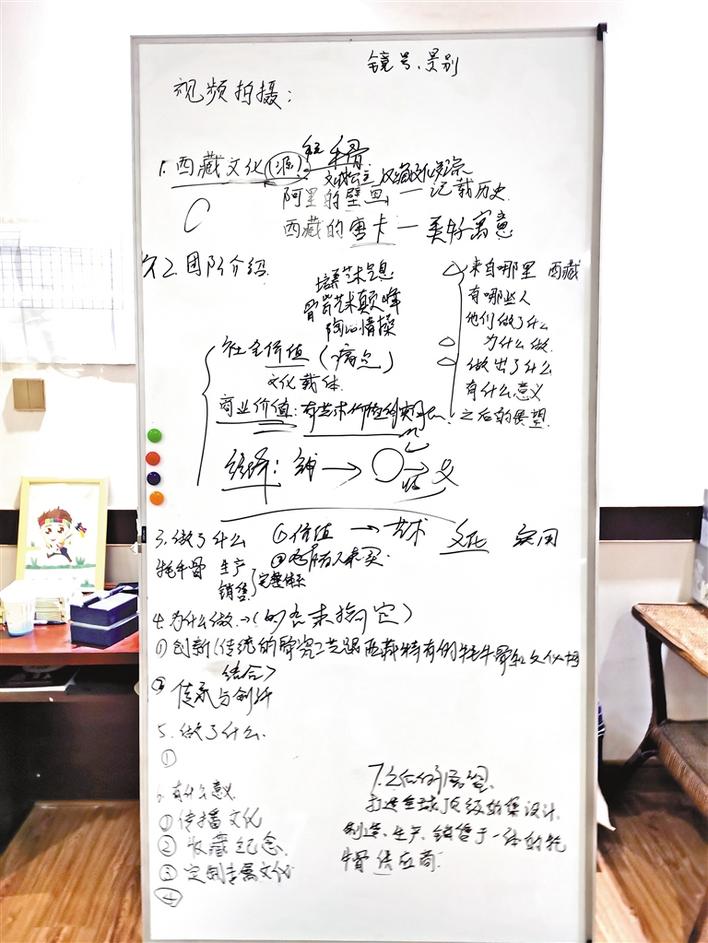 镜号、景别
视频拍摄：
1.西藏文化(源)
阿里的壁画 — 记载历史
西藏的唐卡 — 美好寓意
2.团队介绍
来自哪里 西藏
有哪些人
他们做了什么
为什么做
做出了什么
有什么意义
之后的展望
培养艺术气息
骨瓷艺术颠峰
陶冶情操
社会价值（痛点）
文化载体
商业价值：有艺术价值
3.做了什么 ①价值 → 艺术 文化 实用
牦牛骨 生产 销售 完整体系
4.为什么做→(
①创新(传统的骨瓷工艺跟西藏特有的牦牛骨和文化相
结合)
② 传承与创新
5.做了什么
①
6.有什么意义
①传播文化
② 收藏纪念
③ 定制专属文化
④
7.之后的展望
打造全球顶级的集设计、
制造、生产、销售于一体的牦
牛骨供应商